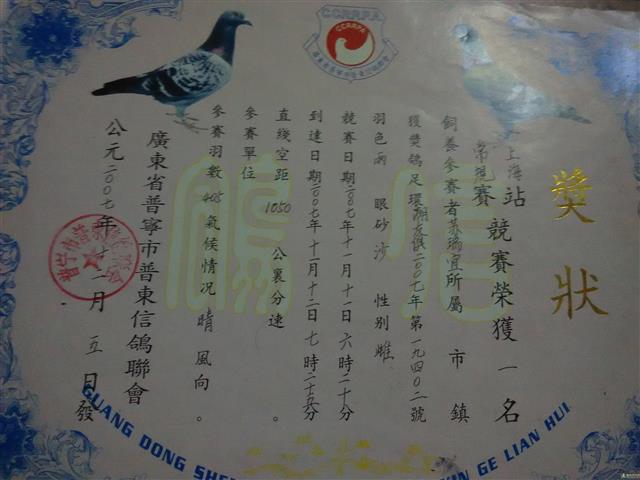 CCRRPA
獎狀
上海站競賽榮獲一名
常規賽
飼養參賽者蘇瑞宜所屬 市 鎮
獲獎鴿足環 二〇〇七年第一九四〇二號
羽色雨 眼砂沙 性別雌
競賽日期二〇〇七年十一月十一日六時二十分
到達日期二〇〇七年十一月十二日七時二十五分
直綫空距 1050 公裏分速 。
參賽單位
參賽羽數 405 氣候情況 晴 風向 。
廣東省普寧市普東信鴿聯會
公元二〇〇七年十一月 五日發
GUANG DONG SHE
GE LIAN HUI